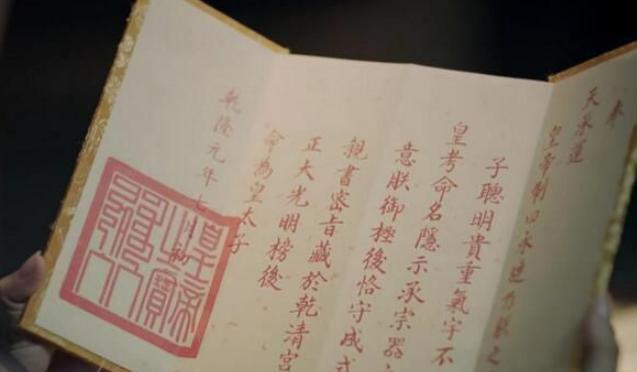 奉
天承運
皇帝制曰永璉乃朕之
子聰明貴重氣宇不
皇考命名隱示承宗器
意朕御極後恪守成式
親書密旨藏於乾清宮
正大光明榜後
命為皇太子
乾隆元年七月初
皇帝之寶